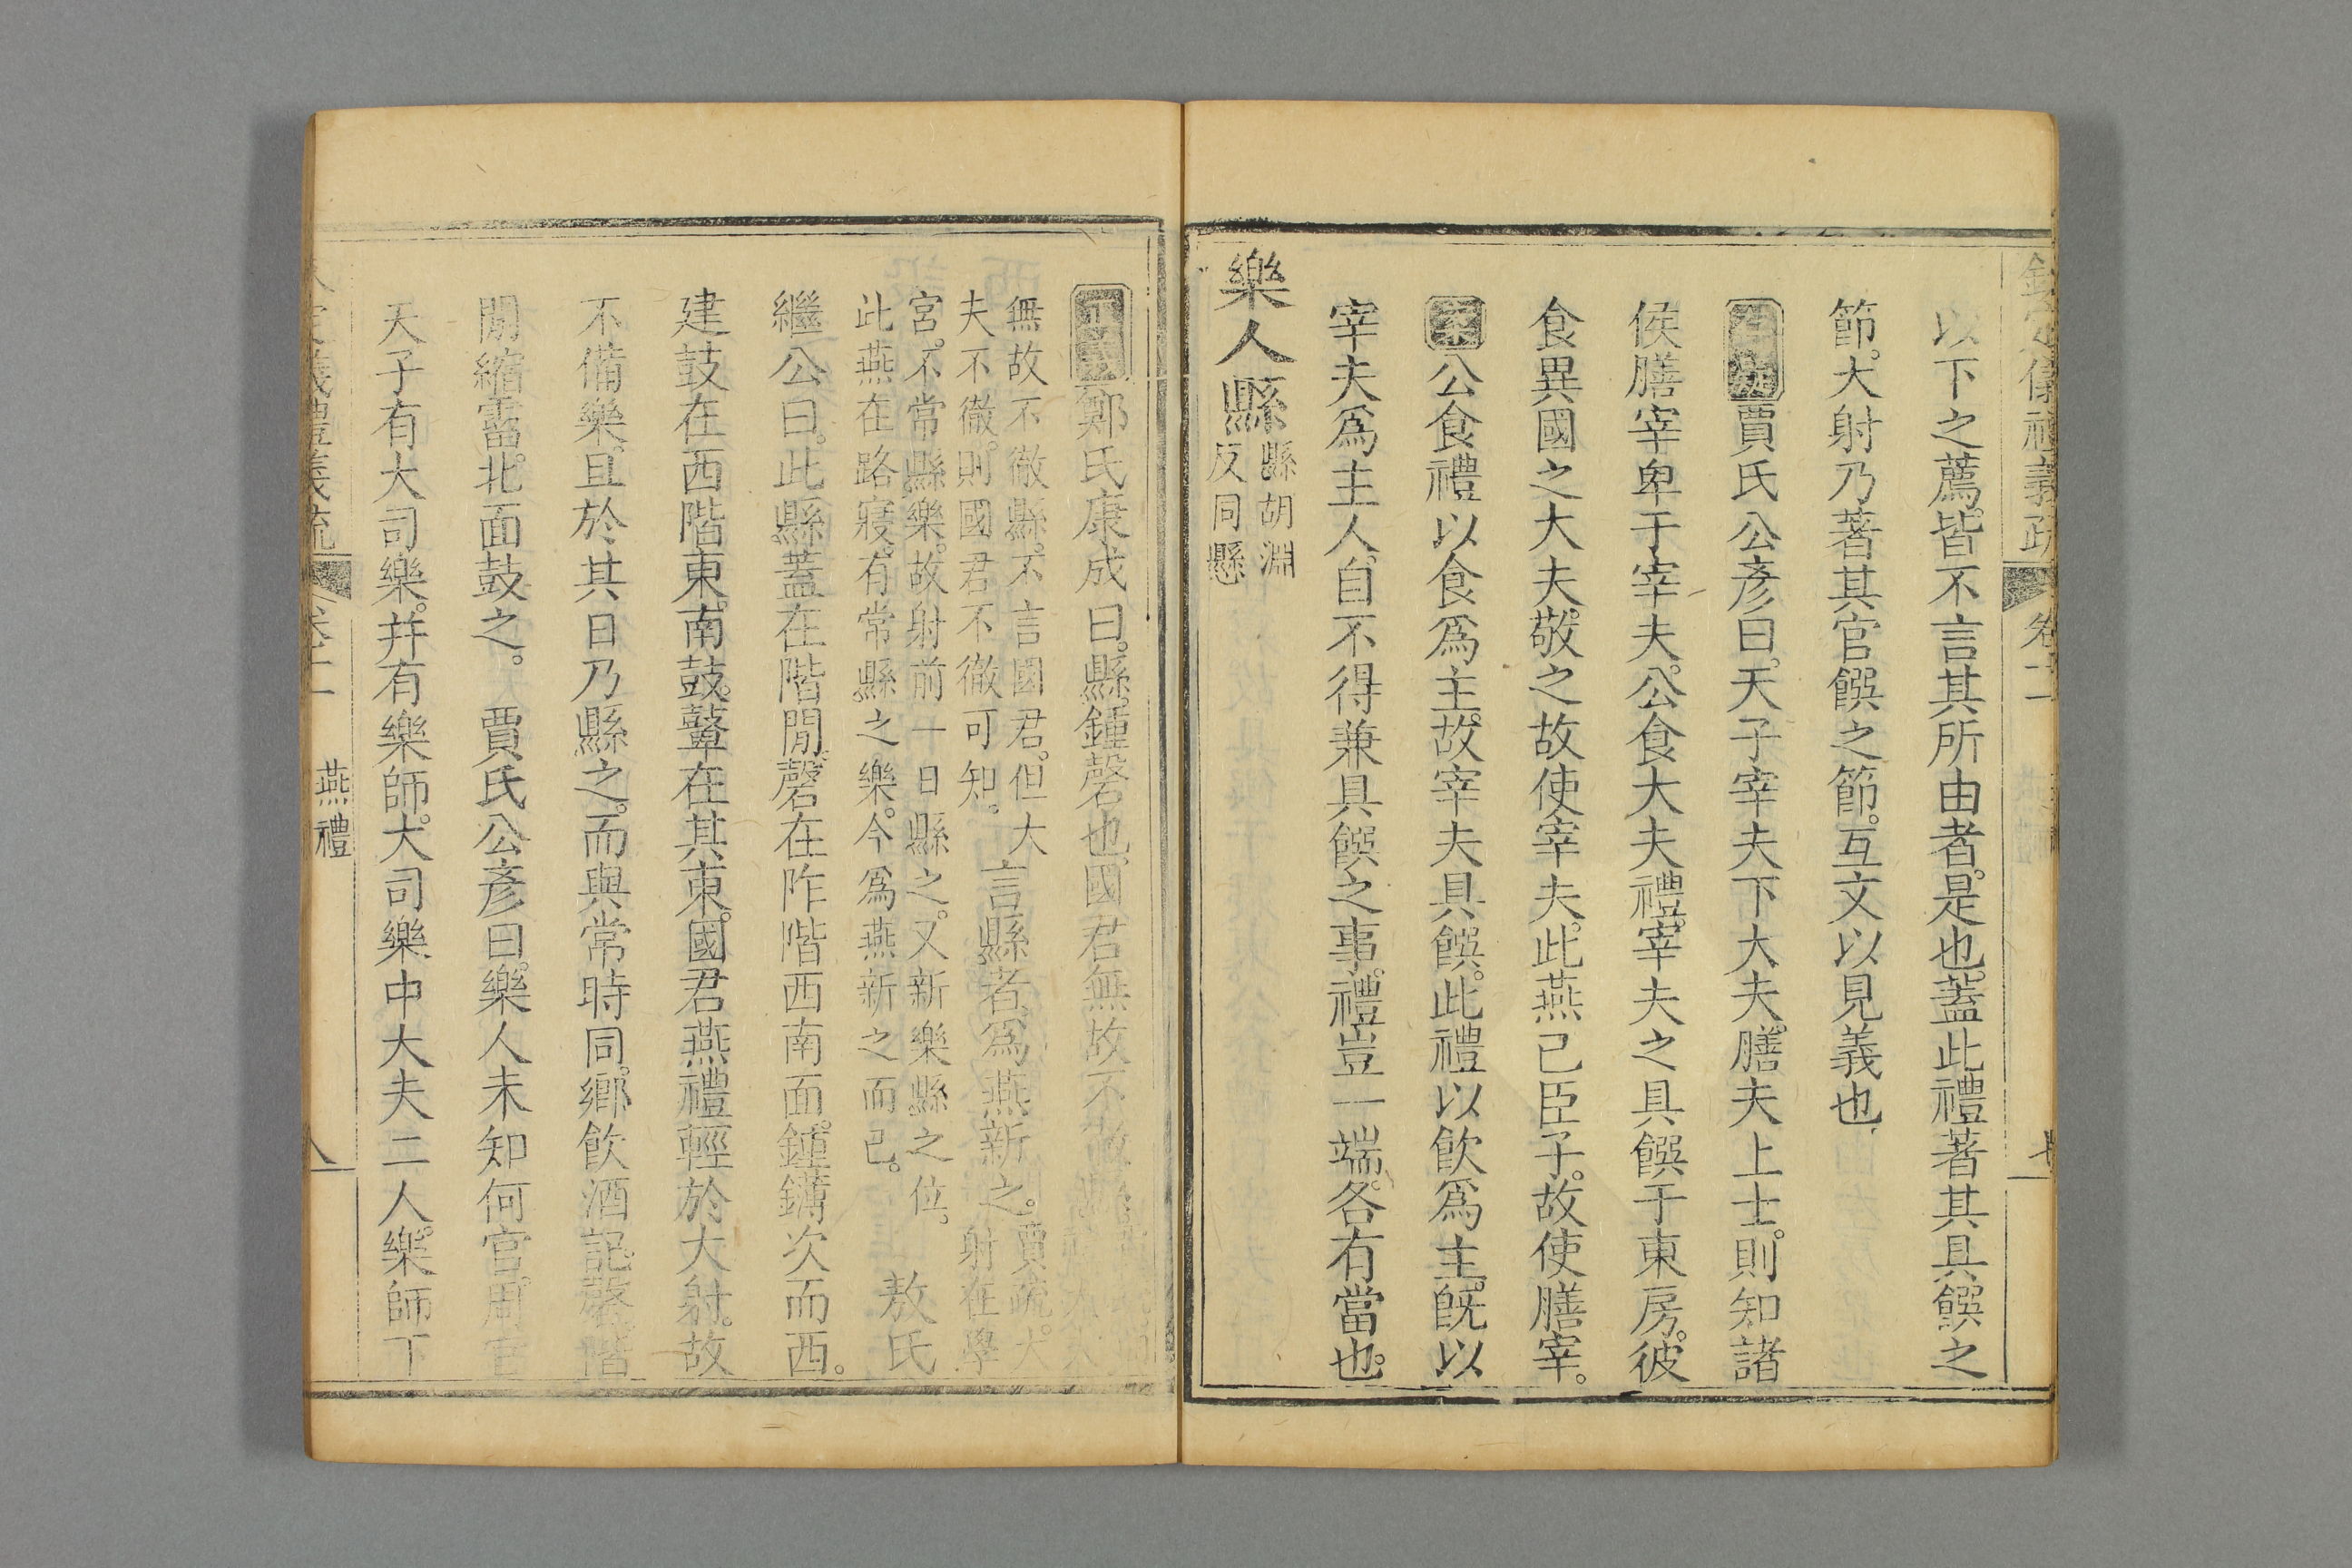 以下之薦。皆不言其所由者。是也。蓋此禮著其具饌之
節。大射乃著其官饌之節。互文以見義也
賈氏公彥曰。天子宰夫下大夫。膳夫上士。則知諸
侯膳宰卑于宰夫。公食大夫禮。宰夫之具饌于東房。彼
食異國之大夫。敬之故使宰夫。此燕己臣子。故使膳宰。
案公食禮以食爲主。故宰夫具饌。此禮以飲爲主。既以
宰夫爲主人。自不得兼具饌之事。禮豈一端。各有當也。
樂人縣
縣胡淵
反同懸
正義鄭氏康成曰。縣。鍾磬也。國君無故不徹
無故不徹縣。不言國君。但大
夫不徹。則國君不徹可知。
言縣者。爲燕新之。
賈疏。大
射在學
宮。不常縣樂。故射前一日縣之。又新樂縣之位。
此燕在路寢。有常縣之樂。今爲燕新之而已。
敖氏
繼公曰。此縣蓋在階閒。磬在阼階西南面。鍾鑮次而西。
建鼓在西階東。南鼓。鼙在其東。國君燕禮輕於大射。故
不備樂。且於其日乃縣之。而與常時同。鄉飲酒記。磬。階
閒縮霤。北面鼓之。 賈氏公彥曰。樂人未知何官。周官
天子有大司樂。幷有樂師。大司樂中大夫二人。樂師下
欽定儀禮義疏 卷十二
義禮義疏 卷十二 燕禮 八